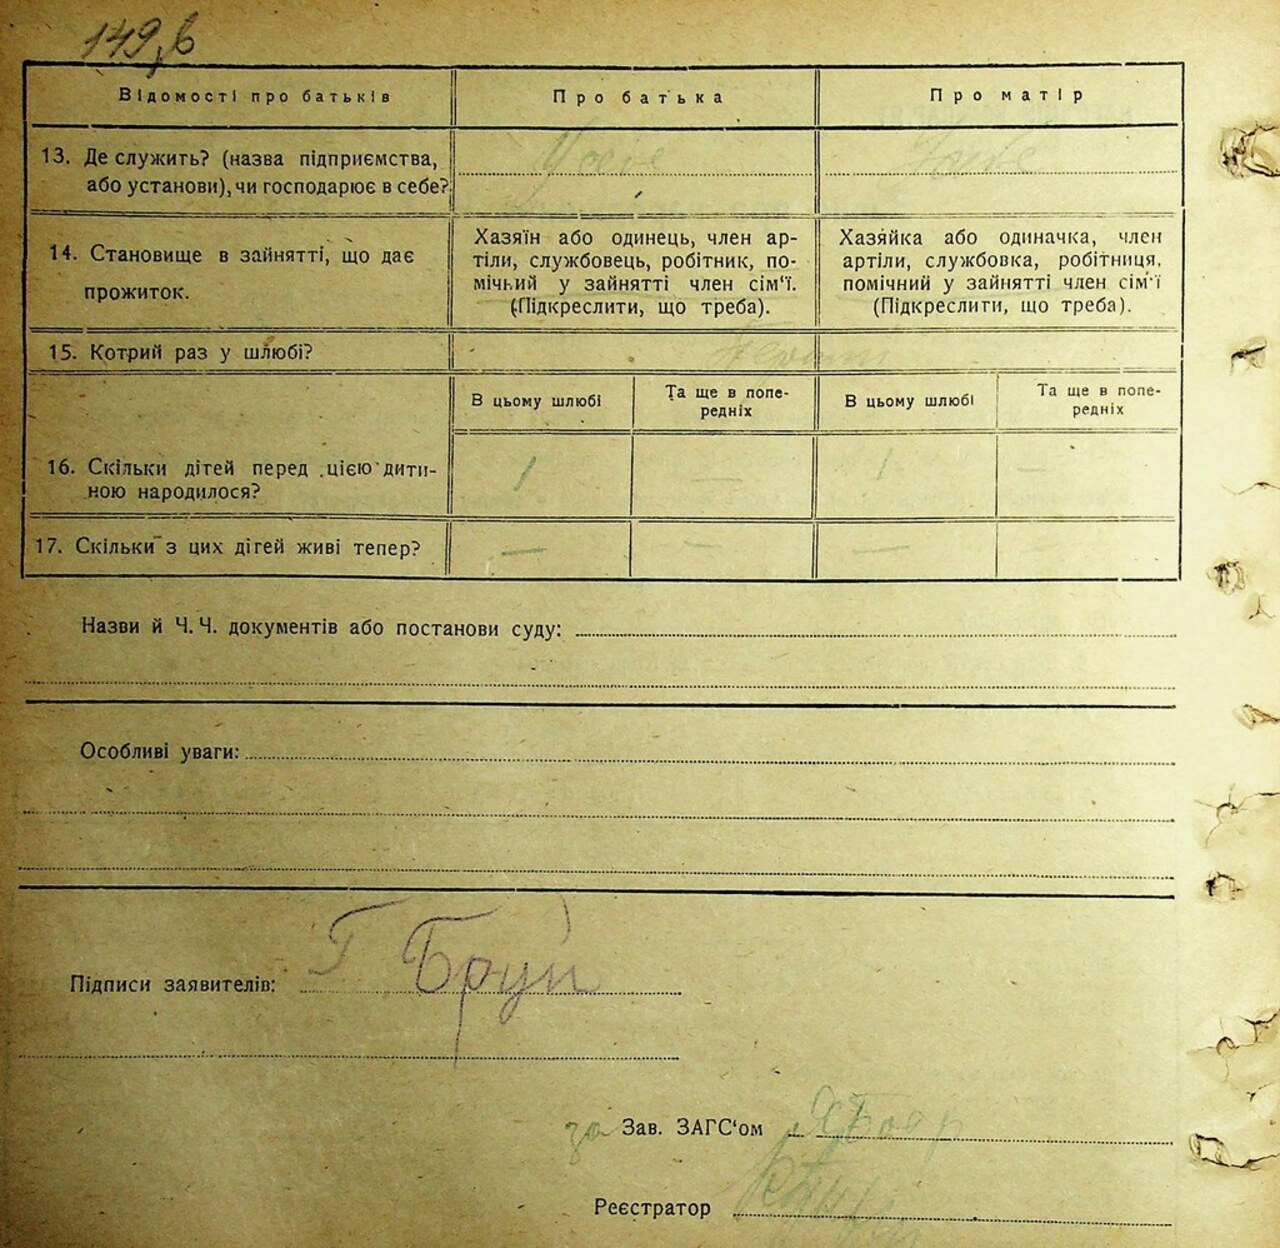 149,в
Відомості про батьків
Про батька
Про матір
13. Де служить? (назва підприємства,
або установи), чи господарює в себе?
14. Становище в зайнятті, що дає
прожиток.
Хазяїн або одинець, член ар-
тіли, службовець, робітник, по-
мічний у зайнятті член сім'ї.
(Підкреслити, що треба).
Хазяйка або одиначка, член
артіли, службовка, робітниця,
помічний у зайнятті член сім'ї
(Підкреслити, що треба).
15. Котрий раз у шлюбі?
В цьому шлюбі
Та ще в попе-
редніх
В цьому шлюбі
Та ще в попе-
редніх
16. Скільки дітей перед цією дити-
ною народилося?
1
—
1
—
17. Скільки з цих дітей живі тепер?
—
—
—
—
Назви й Ч. Ч. документів або постанови суду:
Особливі уваги:
Підписи заявителів:
за Зав. ЗАГС'ом
Реєстратор